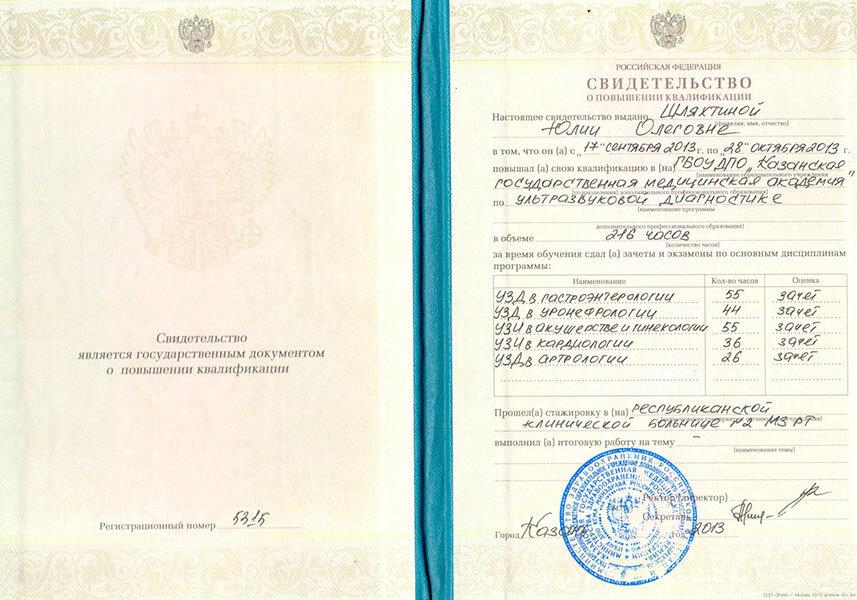 Свидетельство
является государственным документом
о повышении квалификации
Регистрационный номер 5315
РОССИЙСКАЯ ФЕДЕРАЦИЯ
СВИДЕТЕЛЬСТВО
О ПОВЫШЕНИИ КВАЛИФИКАЦИИ
Настоящее свидетельство выдано Шляхтиной
(фамилия, имя, отчество)
Юлии Олеговне
в том, что он (а) с „17" сентября 2013 г. по „28" октября 2013 г.
повышал (а) свою квалификацию в (на) ГБОУ ДПО „Казанская
(наименование образовательного учреждения
государственная медицинская академия"
(подразделения) дополнительного профессионального образования)
по ультразвуковой диагностике
(наименование программы
дополнительного профессионального образования)
в объеме 216 часов
(количество часов)
за время обучения сдал (а) зачеты и экзамены по основным дисциплинам
программы:
Наименование Кол-во часов Оценка
УЗД в гастроэнтерологии 55 зачет
УЗД в уронефрологии 44 зачет
УЗИ в акушерстве и гинекологии 55 зачет
УЗИ в кардиологии 36 зачет
УЗД в артрологии 26 зачет
Прошел(а) стажировку в (на) Республиканской
клинической больнице №2 МЗ РТ
выполнил (а) итоговую работу на тему –
(наименование темы)
Ректор (директор)
Секретарь
Город Казань год 2013